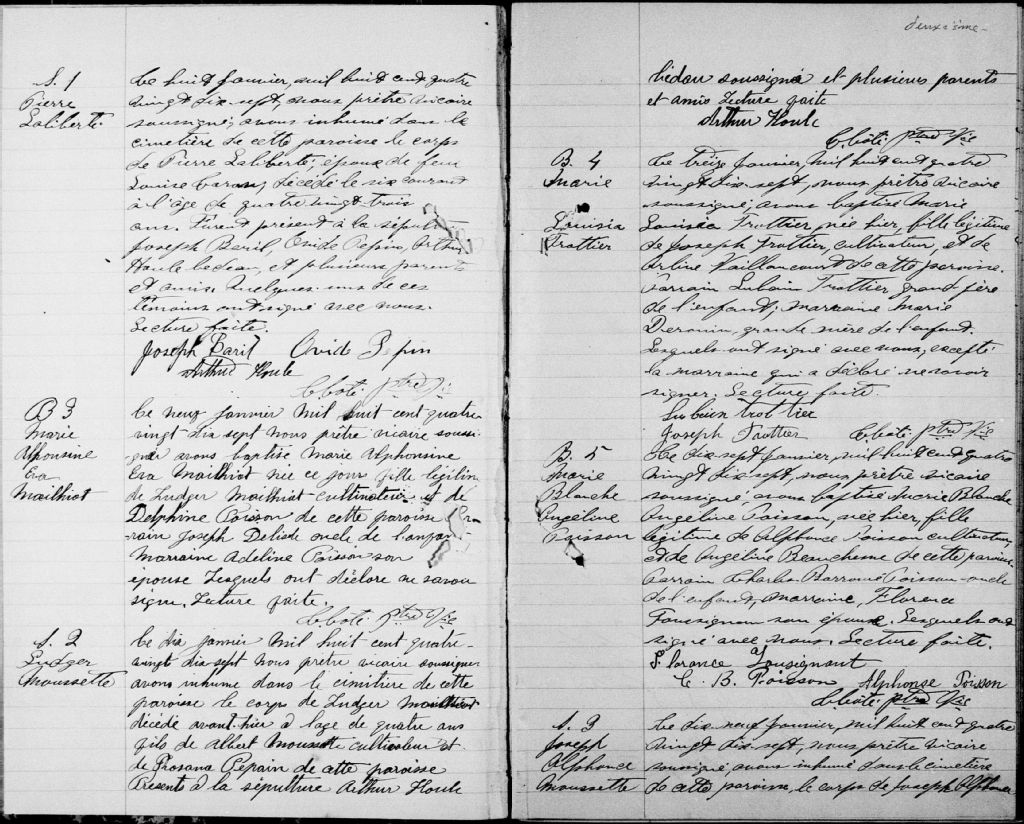 S. 1
Pierre
Laliberté
Le huit janvier, mil huit cent quatre
vingt dix-sept, nous prêtre vicaire
soussigné, avons inhumé dans le
cimetière de cette paroisse le corps
de Pierre Laliberté, époux de feu
Louise Caron, décédé le six courant
à l'âge de quatre vingt trois
ans. Furent présent à la sépult
Joseph Baril, Ovide Pepin, Arthur
Houle bedeau, et plusieurs parents
et amis. Quelques-uns de ces
témoins ont signé avec nous.
Lecture faite.
Joseph Baril Ovide Pepin
Arthur Houle
C. Coté ptre Vic
B 3
Marie
Alphonsine
Eva
Mailhiot
Le neuf janvier mil huit cent quatre
vingt dix sept nous prêtre vicaire soussi-
gné avons baptisé Marie Alphonsine
Eva Mailhiot née ce jour fille légitim
de Ludger Mailhiot cultivateur et de
Delphine Poisson de cette paroisse Par-
rain Joseph Delisle oncle de l'enfant
Marraine Adeline Poisson son
épouse Lesquels ont déclaré ne savoir
signer. Lecture faite.
C. Coté ptre Vic
S. 2
Ludger
Moussette
Le dix janvier mil huit cent quatre-
vingt dix sept nous prêtre vicaire soussigné
avons inhumé dans le cimitière de cette
paroisse le corps de Ludger
décédé avant-hier à l'age de quatre ans
fils de Albert Moussette cultivateur et
de Rosana Pepain de cette paroisse
Présents à la sépulture Arthur Houle
deuxième-
bédau soussigné et plusieurs parents
et amis Lecture faite
Arthur Houle
C. Coté ptre Vic
B. 4
Marie
Louisia
Trottier
Le treize janvier, mil huit cent quatre
vingt dix-sept, nous prêtre vicaire
soussigné, avons baptisé Marie
Louisia Trottier, née hier, fille légitime
de Joseph Trottier, cultivateur, et de
Arline Vaillancourt de cette paroisse.
Parrain Lubain Trottier, grand père
de l'enfant; marraine Marie
Derouin, grande mère de l'enfant.
Lesquels ont signé avec nous, excepté
la marraine qui a déclaré ne savoir
signer. Lecture faite.
Lubain trottier
Joseph Trottier C. Coté ptre Vic
B. 5
Marie
Blanche
Angéline
Poisson
Le dix sept janvier, mil huit cent quatre
vingt dix-sept, nous prêtre vicaire
soussigné avons baptisé Marie Blanche
Angéline Poisson, née hier, fille
légitime de Alphonse Poisson cultivateur,
et de Angéline Beauchesne de cette paroisse.
Parrain Charles Barromé Poisson oncle
de l'enfant, marraine, Florence
Tousignan son épouse. Lesquels ont
signé avec nous. Lecture faite.
Florance Tousignant
C. B. Poisson Alphonse Poisson
C. Coté ptre Vic
S. 3
Joseph
Alphonce
Moussette
Le dix-neuf janvier, mil huit cent quatre
vingt dix-sept, nous prêtre vicaire
soussigné, avons inhumé dans le cimetière
de cette paroisse, le corps de Joseph Alphonse